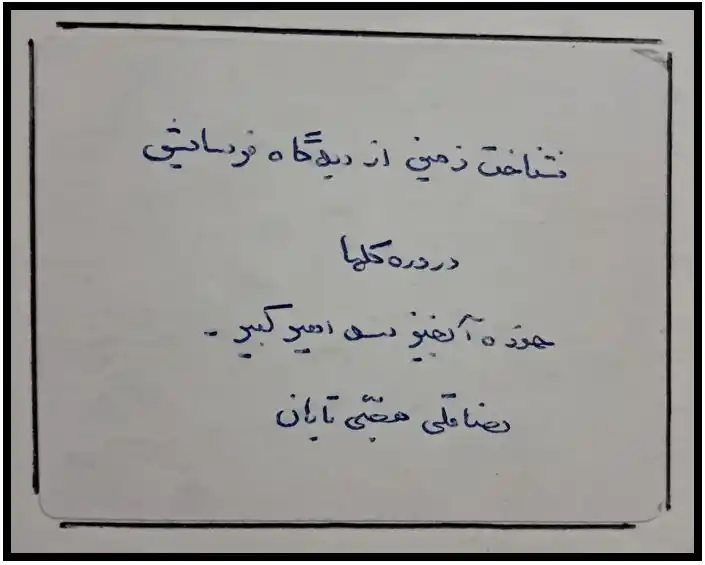 شناخت زمین از دیدگاه فرسایش
در دره گلها
حوزه آبخیز سد امیر کبیر -
رضاقلی هفت تابان